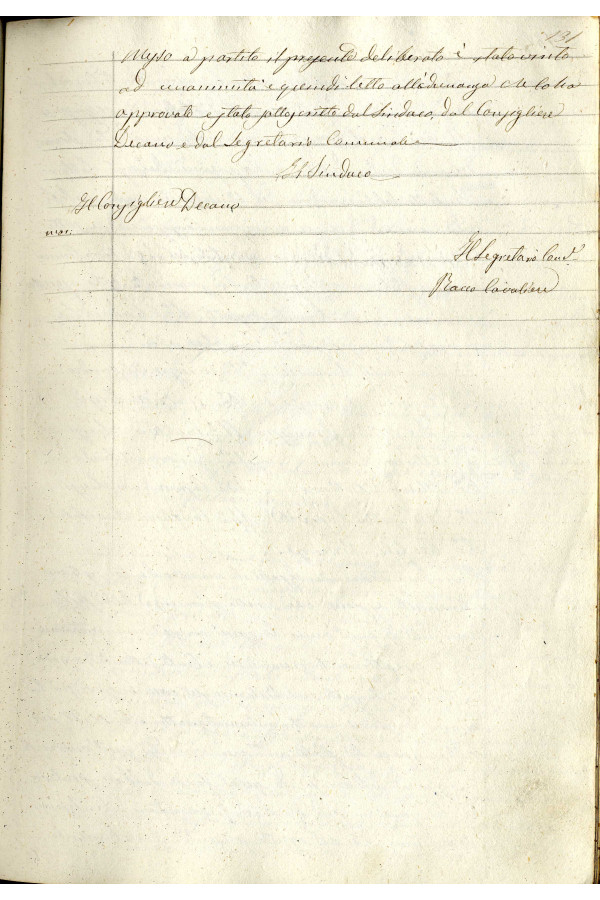 131
Messo a partito il presente deliberato è stato vinto
ad unanimità e quindi letto all'adunanza che lo ha
approvato e stato sottoscritto dal Sindaco, dal Consigliere
Decano e dal Segretario Comunale
Il Sindaco
Il Consigliere Decano
Il Segretario Com.
Rocco Cavaliere